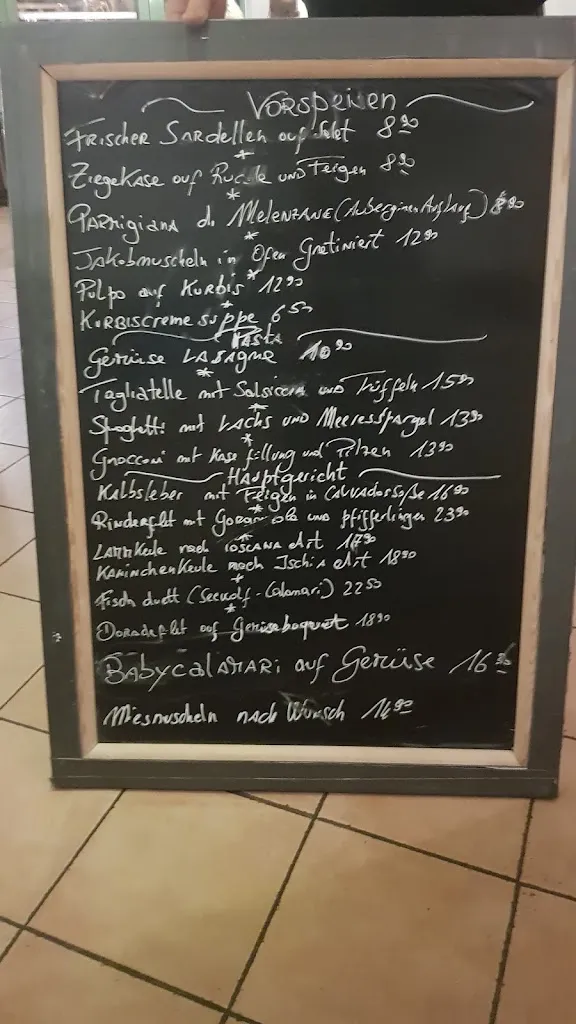 Vorspeisen
Frischer Sardellen auf Salat 8 90
Ziegekäse auf Rucola und Feigen 8 90
Parmigiana di Melenzane (Auberginen Auflauf) 8 90
Jakobmuscheln in Ofen Gratiniert 12 90
Pulpo auf Kürbis 12 90
Kürbiscreme suppe 6 50
Pasta
Gemüse Lasagne 10 90
Tagliatelle mit Salsiccia und Trüffeln 15 90
Spaghetti mit Lachs und Meeresspargel 13 90
Gnocchi mit Käse füllung und Pilzen 13 90
Hauptgericht
Kalbsleber mit Feigen in Calvadossoße 16 90
Rinderfilet mit Gorgonzola und pfifferlingen 23 90
Lammkeule nach Toscana Art 17 90
Kaninchenkeule nach Ischia Art 18 90
Fisch duett (Seewolf - Calamari) 22 50
Doradefilet auf Gemüsebouquet 18 90
Babycalamari auf Gemüse 16
Miesmuscheln nach Wunsch 14 90